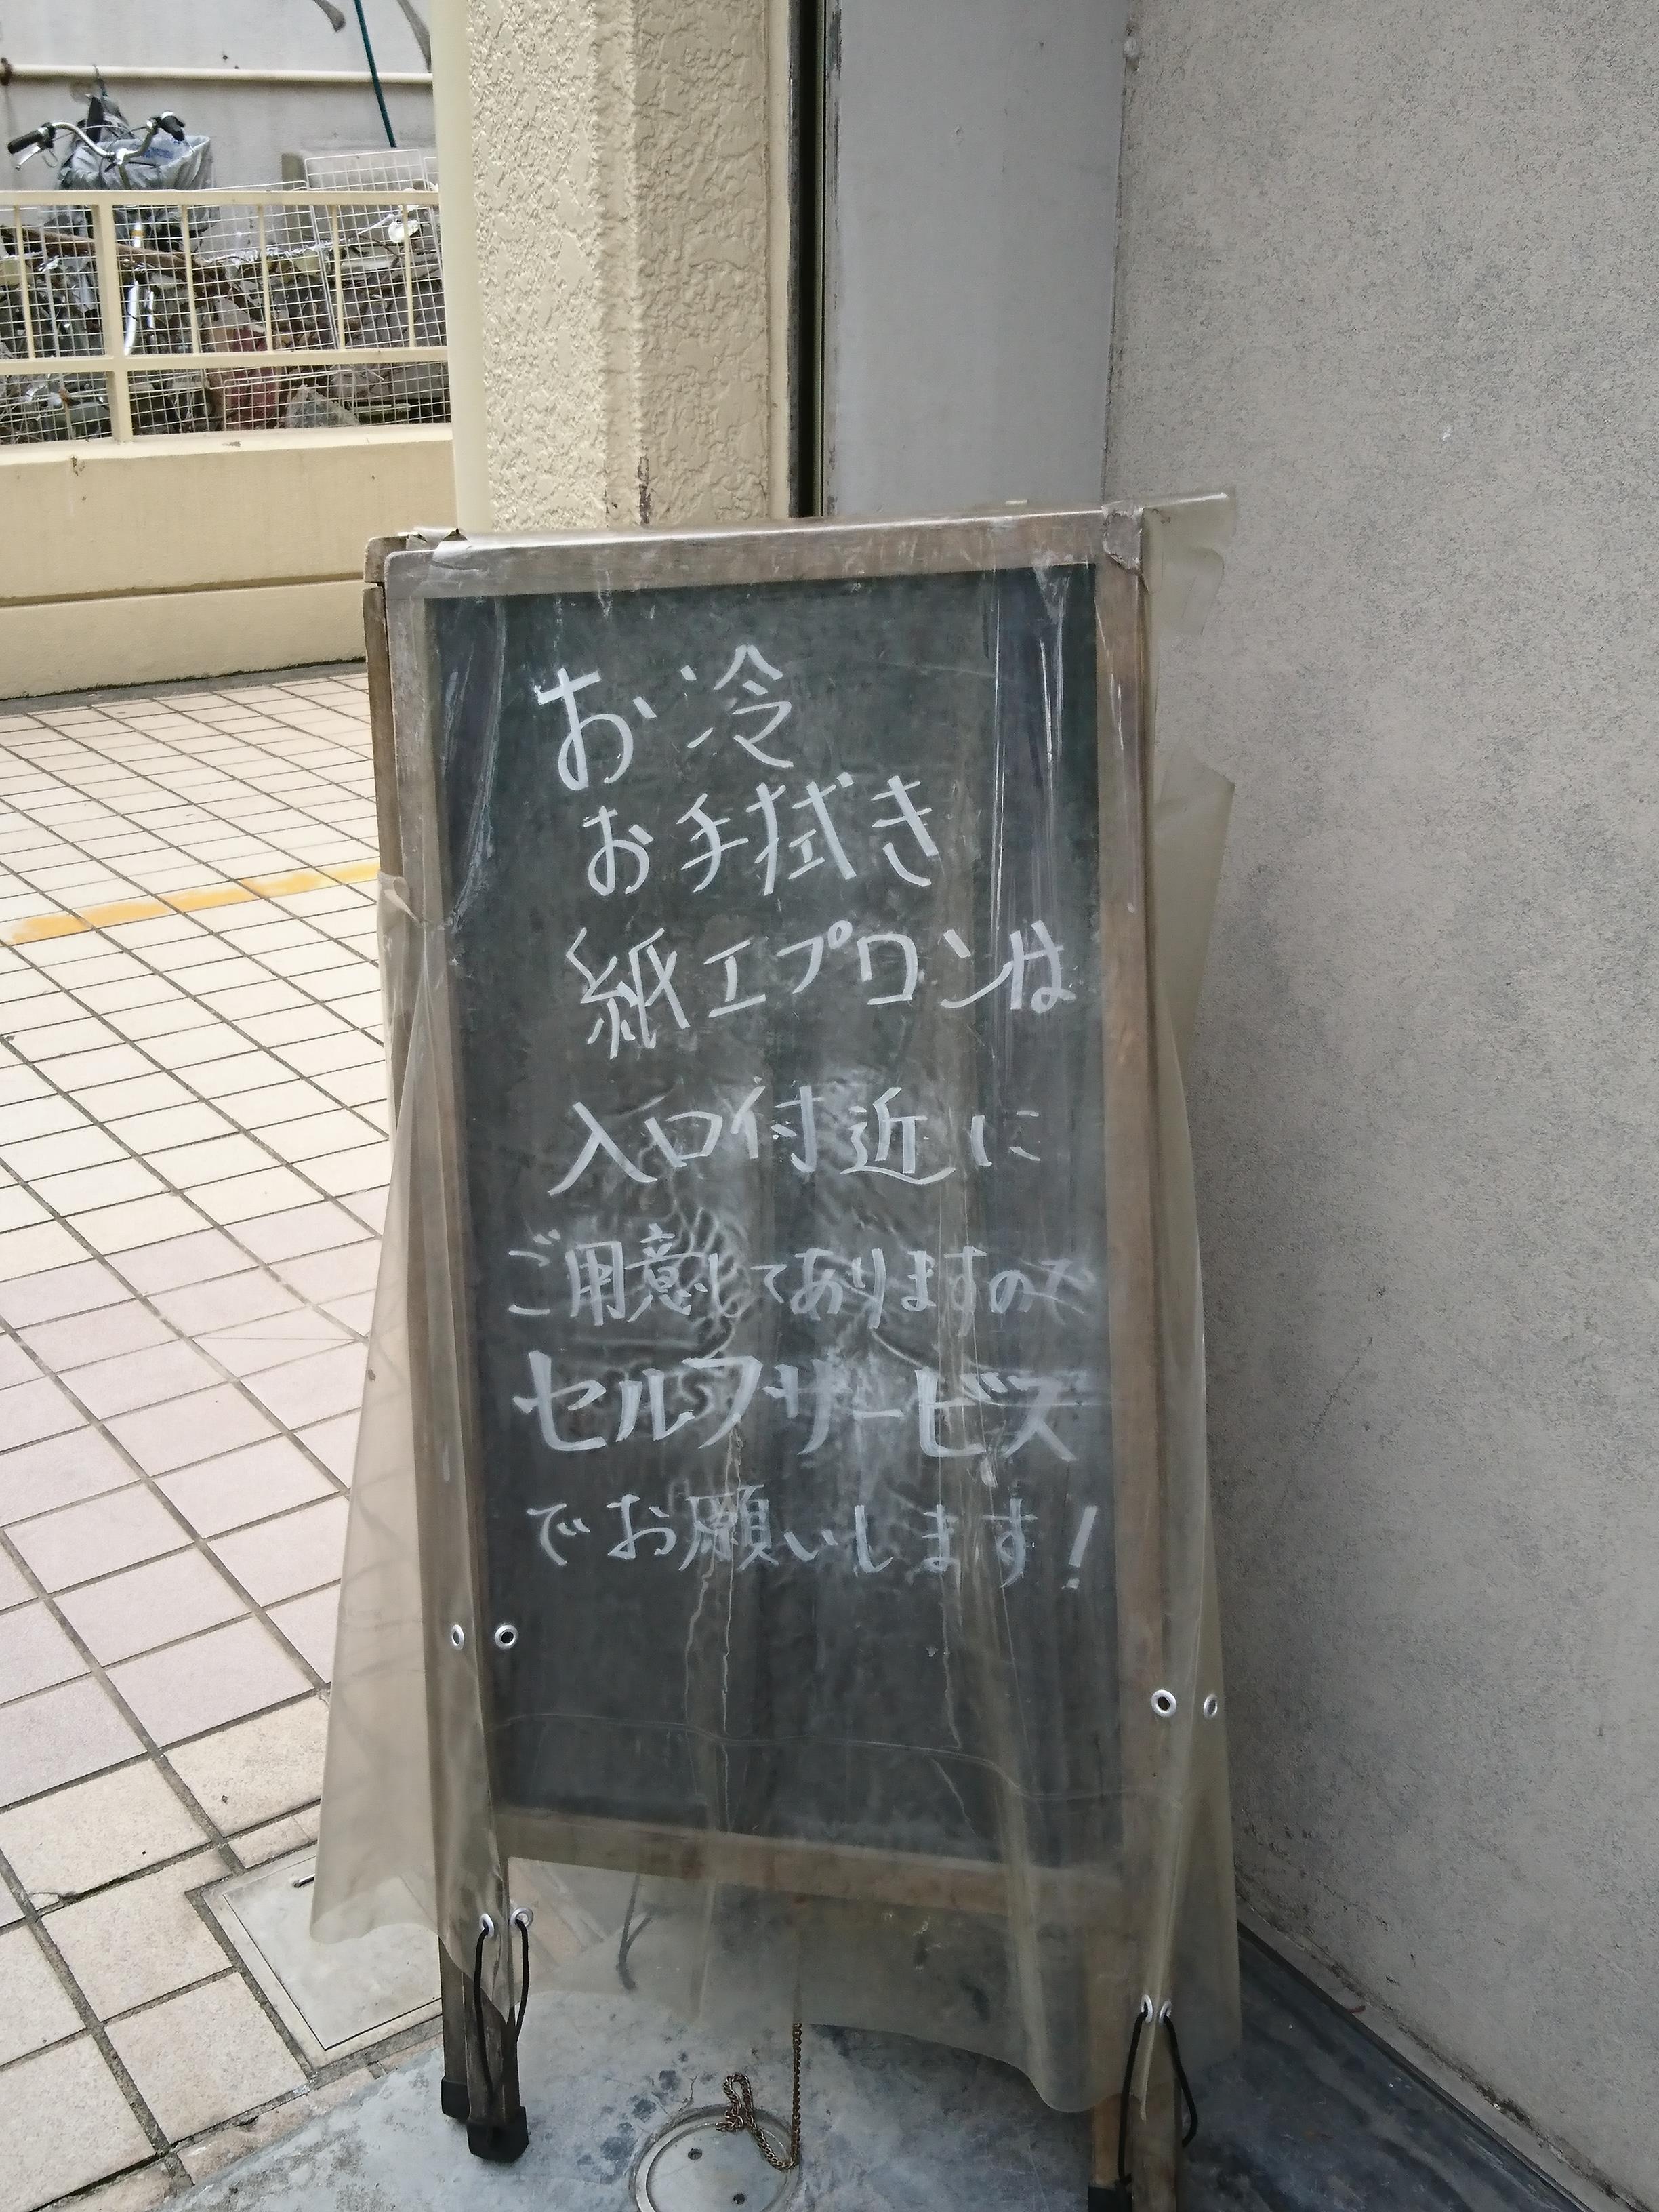 お冷
お手拭き
紙エプロンは
入口付近に
ご用意してありますので
セルフサービス
でお願いします!